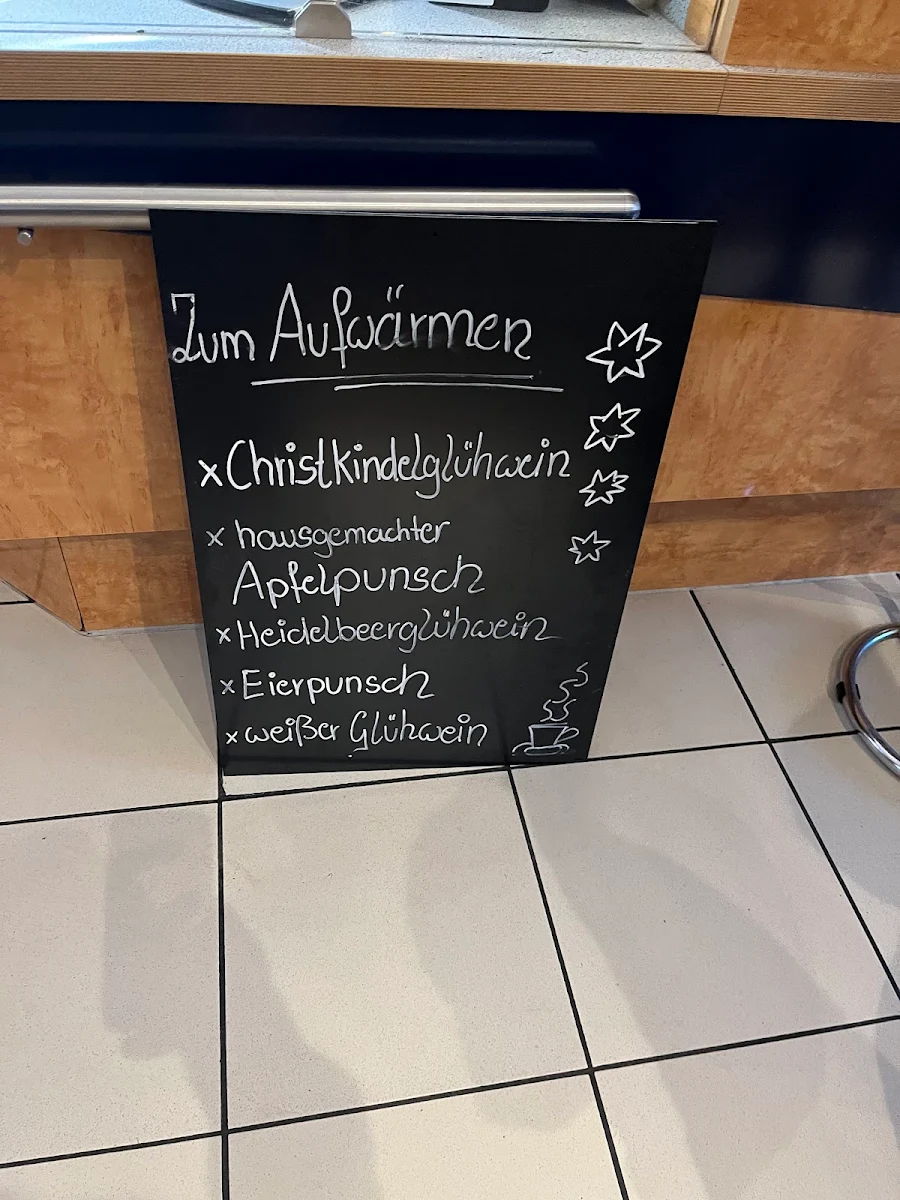 Zum Aufwärmen
x Christkindelglühwein
x hausgemachter
Apfelpunsch
x Heidelbeerglühwein
x Eierpunsch
x weißer Glühwein